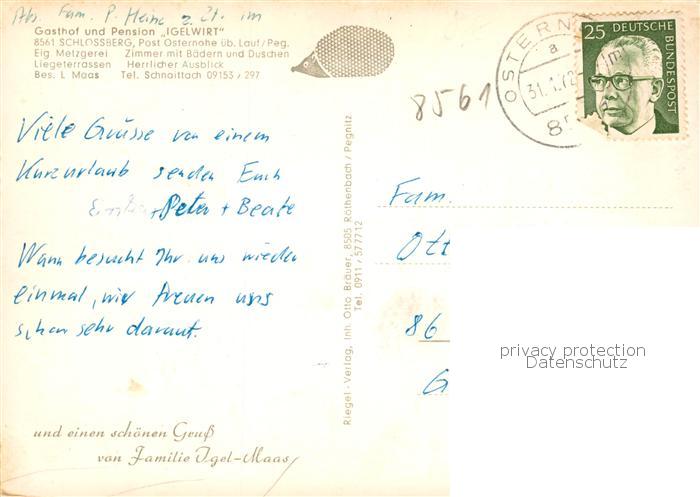 Abs. Fam. P. Heine z. Zt. im
Gasthof und Pension „IGELWIRT"
8561 SCHLOSSBERG, Post Osternohe üb. Lauf/Peg.
Eig. Metzgerei Zimmer mit Bädern und Duschen
Liegeterrassen Herrlicher Ausblick
Bes. L Maas Tel. Schnaittach 09153/297
Viele Grüsse von einem
Kurzurlaub senden Euch
+ Peter + Beate
Wann besucht Ihr uns wieder
einmal, wir freuen uns
schon sehr darauf.
und einen schönen Gruß
von Familie Igel-Maas
Riegel-Verlag, Inh. Otto Bräuer, 8505 Röthenbach / Pegnitz
Tel. 0911 / 577712
8561
OSTERN
a
31.1.72
85
25 DEUTSCHE BUNDESPOST
Fam.
Ott
86
G
privacy protection
Datenschutz